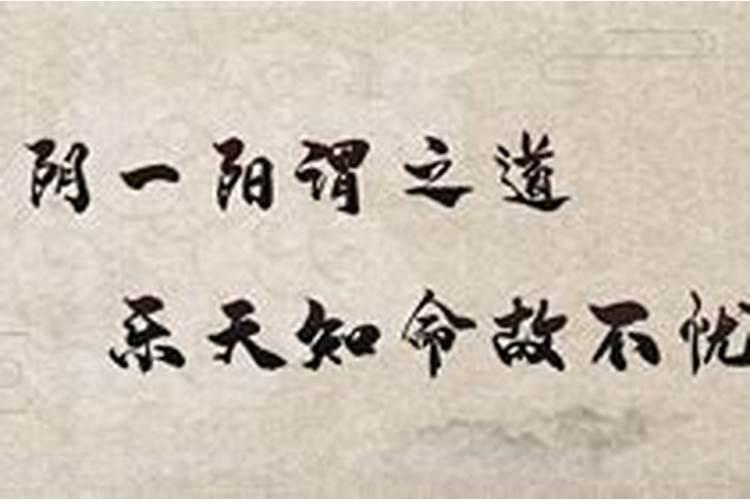 阴一阳谓之道
乐天知命故不忧